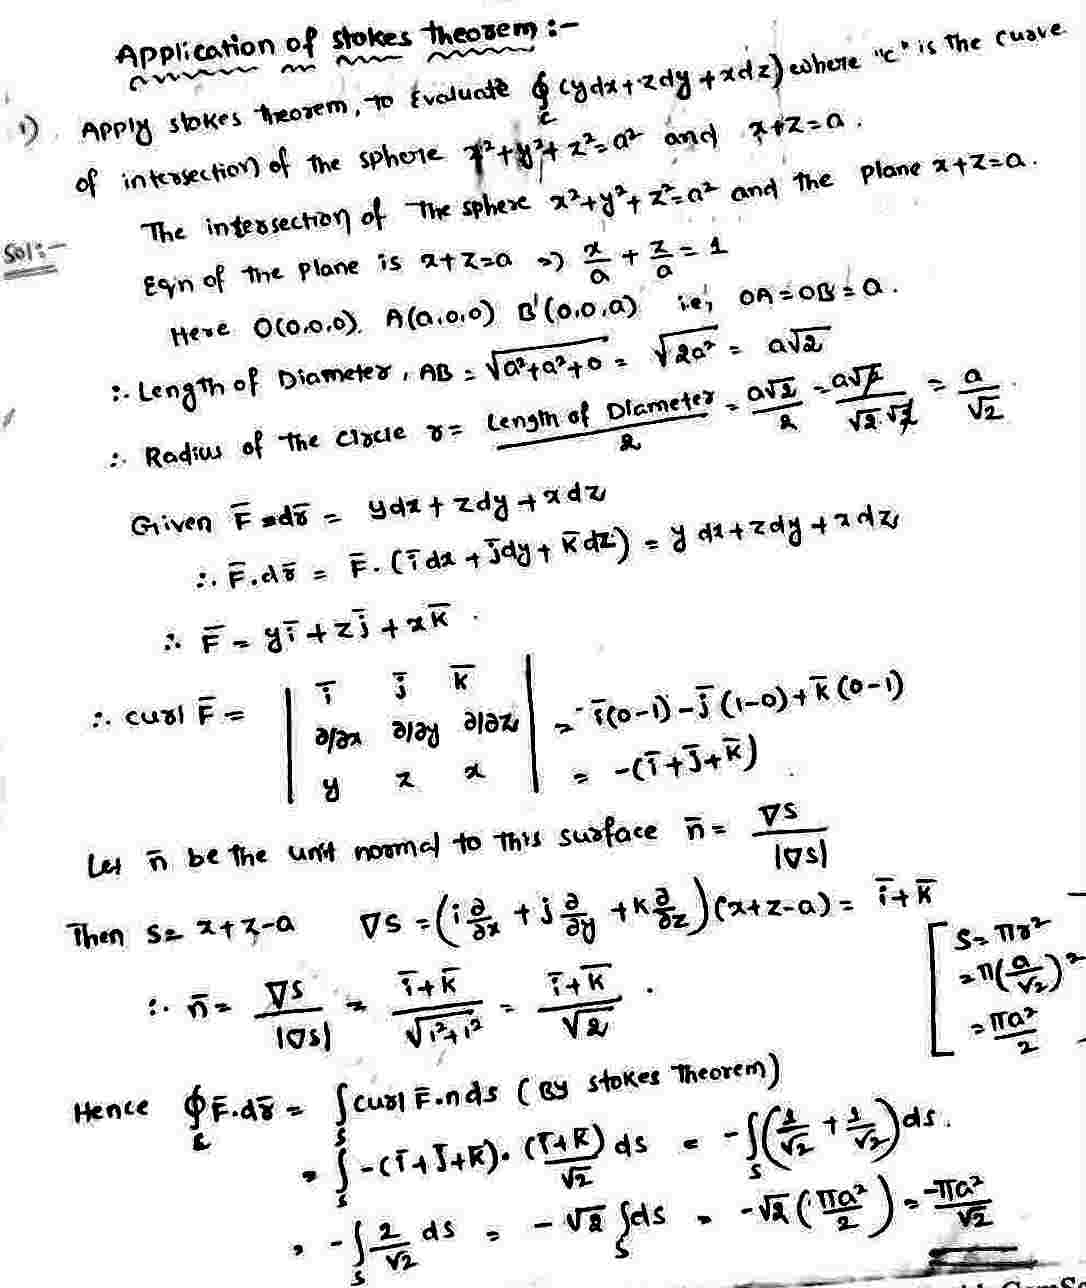 Application of stokes theorem :-
1) Apply stokes theorem, to Evaluate ∮_c (ydx + zdy + xdz) where "c" is The curve
of intersection of The sphere x²+y²+z²=a² and x+z=a.
Sol:- The intersection of The sphere x²+y²+z²=a² and The plane x+z=a.
Eqn of The Plane is x+z=a => x/a + z/a = 1
Here O(0,0,0), A(a,0,0) B'(0,0,a) i.e; OA=OB=a.
∴ Length of Diameter, AB = √(a²+a²+0) = √(2a²) = a√2
∴ Radius of The Circle r = Length of Diameter/2 = a√2/2 = a√2/(√2.√2) = a/√2.
Given F̄ . dr̄ = ydx + zdy + xdz
∴ F̄.dr̄ = F̄.(īdx + j̄dy + k̄dz) = y dx + zdy + xdz
∴ F̄ = yī + zj̄ + xk̄.
∴ curl F̄ = | ī j̄ k̄ |
| ∂/∂x ∂/∂y ∂/∂z | = ī(0-1) - j̄(1-0) + k̄(0-1)
| y z x | = -(ī+j̄+k̄)
Let n̄ be The unit normal to This surface n̄ = ∇s/|∇s|
Then s = x+z-a ∇s = (i ∂/∂x + j ∂/∂y + k ∂/∂z)(x+z-a) = ī+k̄
∴ n̄ = ∇s/|∇s| = (ī+k̄)/√(1²+1²) = (ī+k̄)/√2.
[ S = πr²
= π(a/√2)²
= πa²/2
Hence ∮_c F̄.dr̄ = ∫_s curl F̄.n ds (By stokes Theorem)
= ∫_s -(ī+j̄+k̄).((ī+k̄)/√2) ds = -∫_s (1/√2 + 1/√2) ds.
= -∫_s 2/√2 ds = -√2 ∫_s ds = -√2 (πa²/2) = -πa²/√2